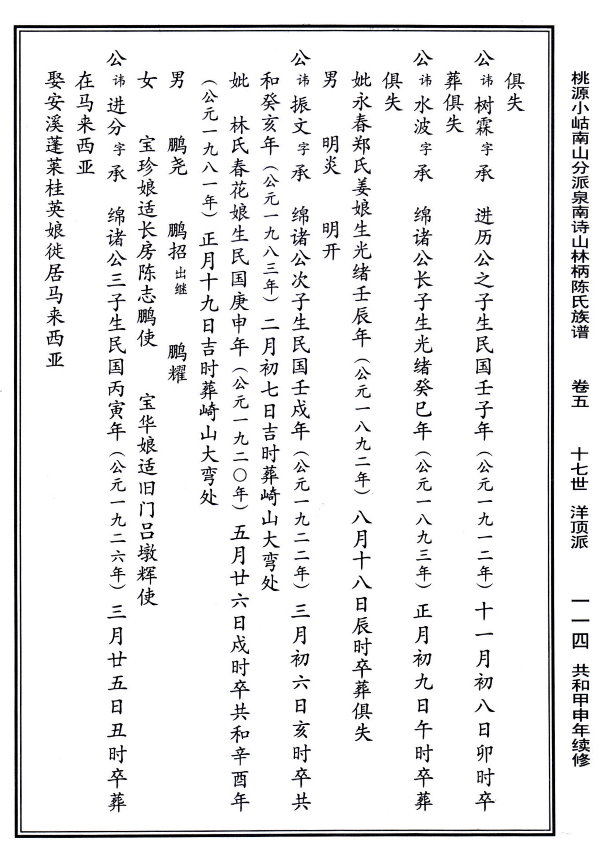 桃源小岵南山分派泉南诗山林柄陈氏族谱 卷五 十七世 洋顶派 一一四 共和甲申年续修
俱失
公讳树霖字承 进历公之子生民国壬子年（公元一九一二年）十一月初八日卯时卒
葬俱失
公讳水波字承 绵诸公长子生光绪癸巳年（公元一八九三年）正月初九日午时卒葬
俱失
妣永春郑氏姜娘生光绪壬辰年（公元一八九二年）八月十八日辰时卒葬俱失
男 明炎 明开
公讳振文字承 绵诸公次子生民国壬戌年（公元一九二二年）三月初六日亥时卒共
和癸亥年（公元一九八三年）二月初七日吉时葬崎山大弯处
妣 林氏春花娘生民国庚申年（公元一九二〇年）五月廿六日戌时卒共和辛酉年
（公元一九八一年）正月十九日吉时葬崎山大弯处
男 鹏尧 鹏招出继 鹏耀
女 宝珍娘适长房陈志鹏使 宝华娘适旧门吕墩辉使
公讳进分字承 绵诸公三子生民国丙寅年（公元一九二六年）三月廿五日丑时卒葬
在马来西亚
娶安溪蓬莱桂英娘徙居马来西亚